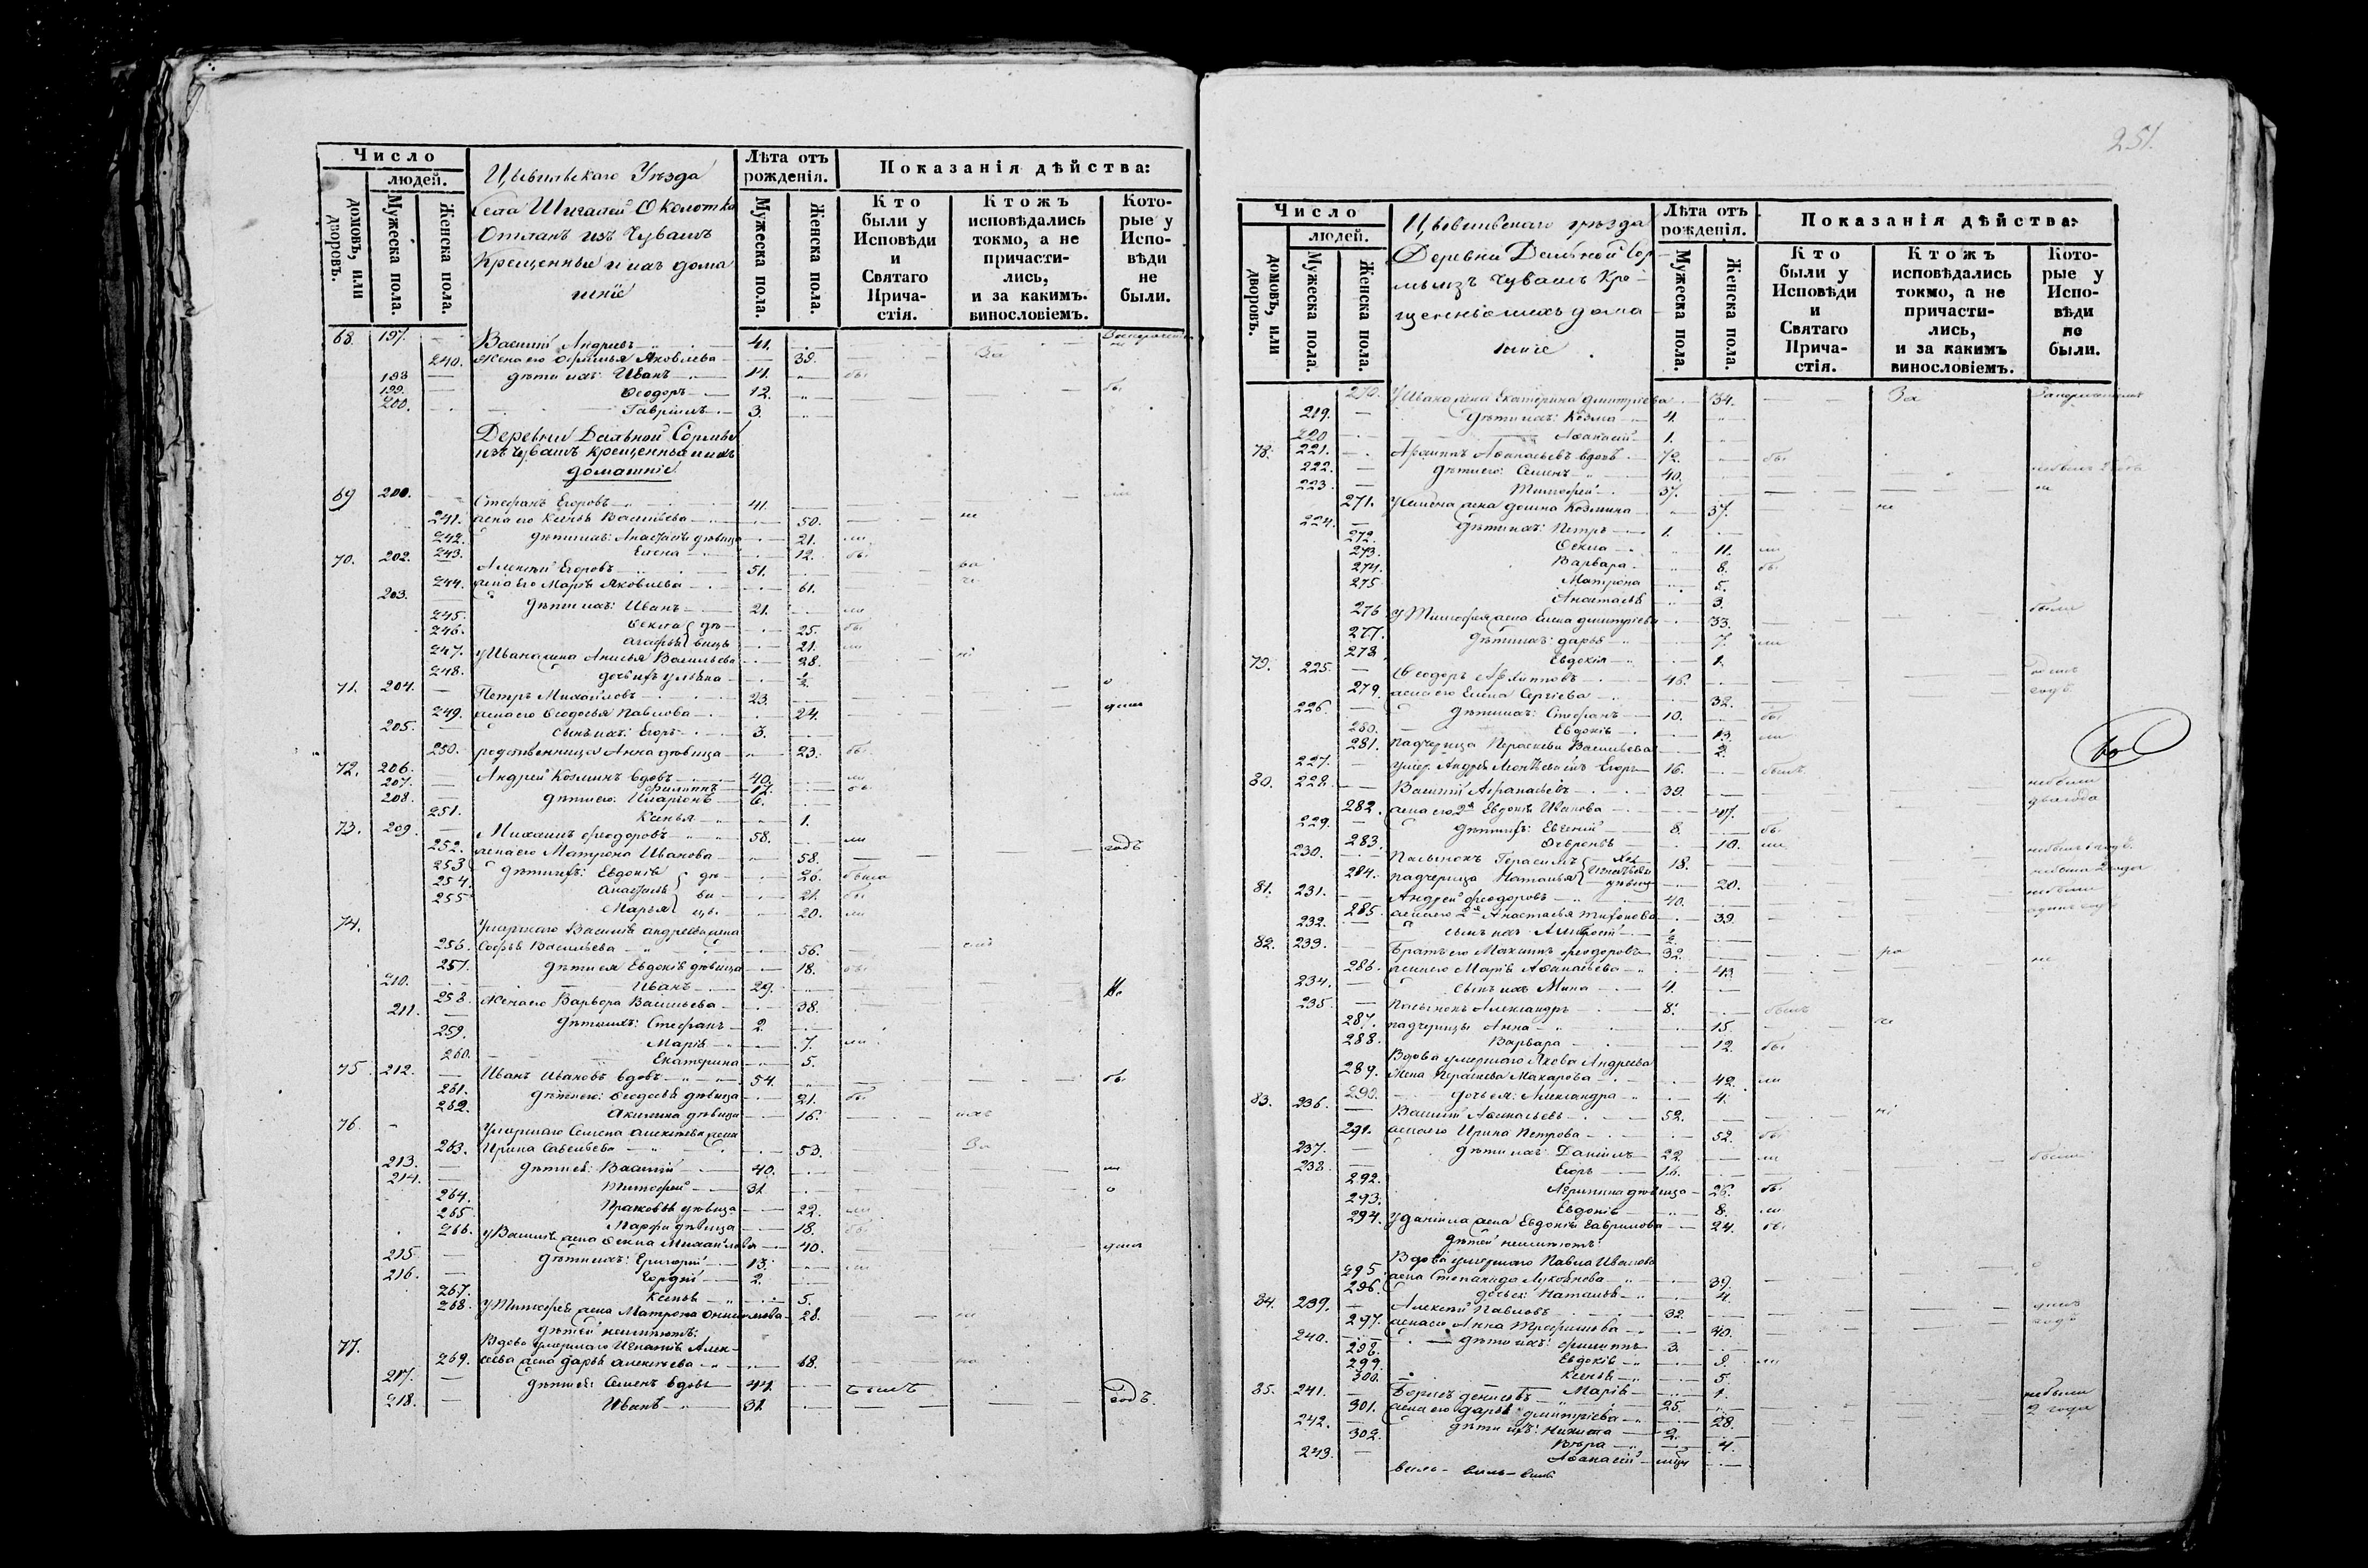 Число
людей.
домовъ, или дворовъ.
Мужеска пола.
Женска пола.
Цывильскаго Уѣзда
Села Шигалей Околотка
изъ Чувашъ
Крещенные и ихъ дома
шніе
Лѣта отъ рожденія.
Мужеска пола.
Женска пола.
Показанія дѣйства:
Кто были у Исповѣди и Святаго Прича-стія.
Ктожъ исповѣдались токмо, а не причасти-лись, и за какимъ. винословіемъ.
Кото-рые у Испо-вѣди не были.
68. 197. Василій Андреевъ 41.
240. Жена его Яковлева 39.
198 дѣти ихъ: Иванъ 14. бы
199. Ѳеодоръ 12. бы
200. Гавріилъ 3.
Деревни Дальной Сормы
изъ Чувашъ крещенные и ихъ
домашніе
69 200. Стефанъ Егоровъ 41.
241. жена его Ксенія Васильева 50. не
242. дѣти ихъ: Анастасія дѣвица 21. ли
243. Елена 12. бы
70. 202. Алексѣй Егоровъ 51.
244. жена его Марія Яковлева 61.
203. дѣти ихъ: Иванъ 21. ли
245. Ѳекла дѣ 25. бы
246. Агафья вицы 21. ли
247. у Ивана жена Анисья Васильева 28.
248. дочь ихъ Ульяна ½
71. 204. Петръ Михайловъ 23.
249. жена его Ѳеодосья Павлова 24. дина
205. сынъ ихъ: Егоръ 3.
250. родственница Анна дѣвица 23. бы
72. 206. Андрей Козминъ вдовъ 40. ли
207. Филиппъ 17. бы
208. дѣти его: Иларіонъ 6.
251. Ксенья 1.
73. 209. Михаилъ Ѳеодоровъ 58. ли
252. жена его Матрона Иванова 58. годъ
253 дѣти ихъ: Евдокія дѣ 26. была
254. Анастасія ви 21. бы
255 Марья цы 20. ли
74. Умершаго Василія Андреева жена
256. Софья Васильева 56.
257. дѣти ея Евдокія дѣвица 18. бы
210. Иванъ 29. Не
258. Жена его Варвара Васильева 38.
211. дѣти ихъ: Стефанъ 2.
259. Марія 7. ли
260. Екатерина 5.
75. 212. Иванъ Ивановъ вдовъ 54. бы
261. дѣти его: Ѳеодосья дѣвица 21. бы
262. Акилина дѣвица 16.
76. Умершаго Семена Алексѣева жена
263. Ирина Савельева 53. За
213. дѣти ея: Василій 40. ли
214. Тимофей 31.
264. Прасковья дѣвица 22. ли
265 Марфа дѣвица 18. бы
266. у Василія жена Ѳекла Михайлова 40. дина
215. дѣти ихъ: Григорій 13. ли
216. Гордѣй 2.
267. Ксенья 5.
268. у Тимофея жена Матрона 28.
дѣтей неимѣютъ:
77. Вдова умершаго Игнатія Алек
269. сѣева жена Дарья Алексѣева 68.
217. дѣти ея: Семенъ вдовъ 44. былъ
218. Иванъ 31. годъ.
251.
Число
людей.
домовъ, или дворовъ.
Мужеска пола.
Женска пола.
Цывильскаго уѣзда
Деревни Дальной Сор
мы изъ Чувашъ Кре-
щенные и ихъ дома
шніе
Лѣта отъ рожденія.
Мужеска пола.
Женска пола.
Показанія дѣйства:
Кто были у Исповѣди и Святаго Прича-стія.
Ктожъ исповѣдались токмо, а не причасти-лись, и за какимъ винословіемъ.
Кото-рые у Испо-вѣди не были.
270. У Ивана жена Екатерина Дмитріева 34. За
219. Дѣти ихъ: Козма 4.
220 Аѳанасій 1.
78. 221. Архиппъ Аѳанасьевъ вдовъ 72. бы
222. дѣти его: Семенъ 40.
223. Тимофей 37.
271. у Семена жена Домна Козмина 37. не
224. дѣти ихъ: Петръ 1.
272. Ѳекла 11. ли
273. Варвара 8. бы
274. Матрона 5.
275 Анастасья 3.
276 у Тимофея жена Елена Дмитріева 33. были
277. дѣти ихъ: Дарья 7. ли
278 Евдокія 1.
79. 225. Ѳеодоръ Архиповъ 46.
279. жена его Елена Сергіева 32. годъ.
226. дѣти ихъ: Стефанъ 10. бы
280. Евдокія 13. ли
281. падчерица Параскева Васильева 2.
227. умер. Андрея Леонтьева сынъ Егоръ 16. былъ
80. 228. Василій Аѳанасьевъ 39. небыли
282. жена его 2я Евдокія Иванова 47. два года
229. дѣти ихъ: Евгеній 8. бы
283. Ѳевронья 10. ли
230. Пасынокъ Герасимъ 18.
284. падчерица Наталья дѣвица 20.
81. 231. Андрей Ѳеодоровъ 40. небыли
285. жена его 2я Анастасья Тихонова 39
232. сынъ ихъ ½
82. 233. Братъ его Максимъ Ѳеодоровъ 32. не
286. жена его Марія Аѳанасьева 43
234. Сынъ ихъ Мина 4.
235. Пасынокъ Александръ 8. былъ
287. падчерицы Анна 15.
288. Варвара 12. бы
Вдова умершаго Якова Андреева
289. Жена Параскева Макарова 42. ли
290. дочь ея: Александра 4.
83. 236. Василій Аѳанасьевъ 52.
291. жена его Ирина Петрова 52. бы
237. дѣти ихъ: Даніилъ 22. ли были
238. Егоръ 16.
292. Агрипина дѣвица 26. бы
293. Евдокія 8. ли
294. у Даніила жена Евдокія Гаврилова 24. бы
дѣтей неимѣютъ
Вдова умершаго Павла Иванова
295. жена Степанида 39.
296. дочь ея: Наталья 4.
84. 239. Алексѣй Павловъ 32.
297. жена его Анна Трофимова 40. годъ
240. дѣти ихъ: Филиппъ 3.
298. Евдокія 9. ли
299. Ксенья 5.
300. Марія 1.
85. 241. Борисъ Денисовъ 25. небыли
301. жена его Дарья Дмитріева 28. 2 года
242. дѣти ихъ: Никита 2.
302. Вѣра 4.
243. Аѳанасій